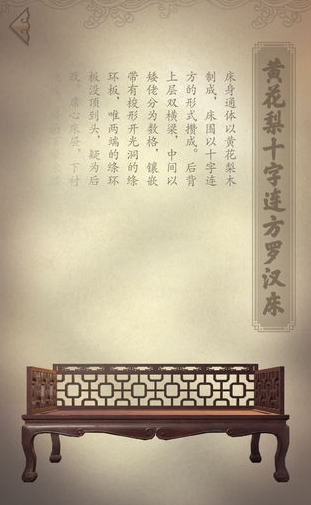 黄花梨十字连方罗汉床
床身通体以黄花梨木
制成，床围以十字连
方的形式攒成。后背
上层双横梁，中间以
矮佬分为数格，镶嵌
带有梭形开光洞的绦
环板，唯两端的绦环
板没顶到头，疑为后
改。席心床屉，下衬